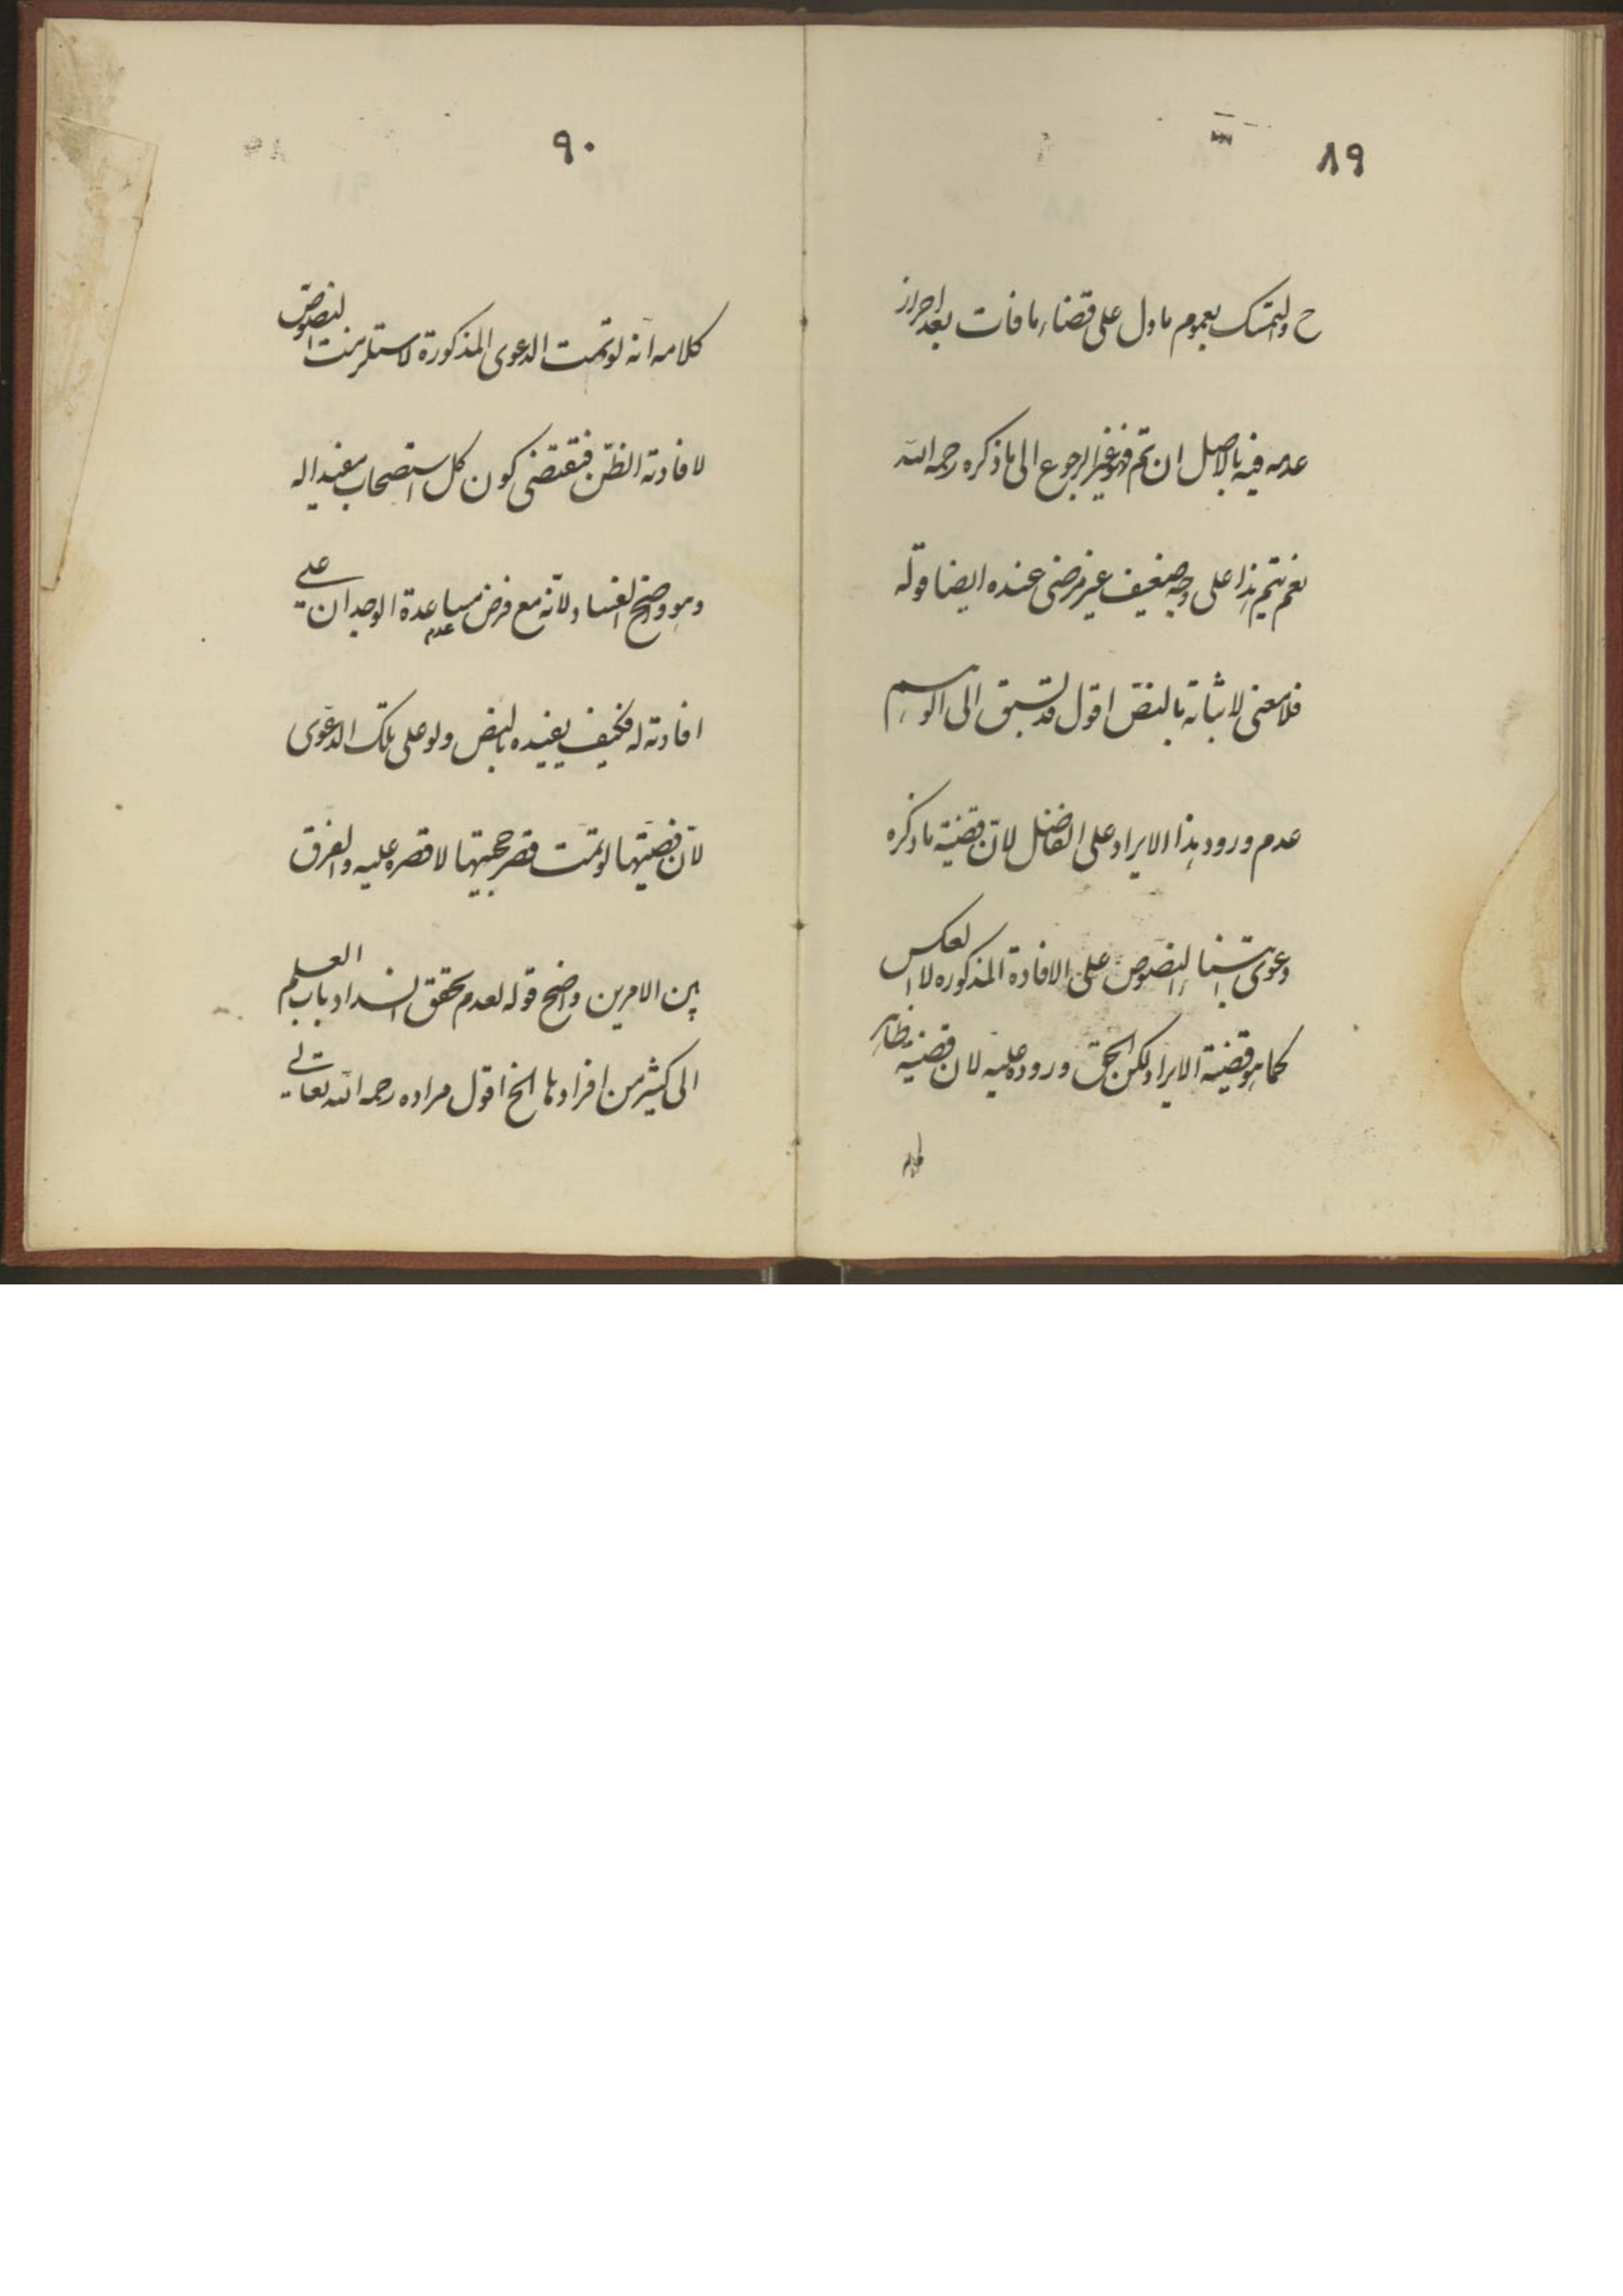 ٨٩
ح والتمسك بعموم ما دل على قضاء ما فات بعد احراز
عدمه فيه بالاصل ان تم فهو غير الرجوع الى ما ذكره رحمه الله
نعم يتم هذا على وجه ضعيف غير مرضى عنده ايضا قوله
فلا معنى لاثباته بالنص اقول قد يسبق الى الوهم
عدم ورود هذا الايراد على الفاضل لان قضية ما ذكره
دعوى ابتناء النصوص على الافادة المذكوره لا العكس
كما هو قضية الايراد لكن الحق وروده عليه لان قضية ظاهر
كلامه
٩٠
كلامه انه لو تمت الدعوى المذكورة لاستلزمت النصوص
لافادته الظن فتقتضى كون كل استصحاب مفيدا له
وهو واضح الفساد ولانه مع فرض عدم مساعدة الوجدان على
افادته له فكيف يفيده بالنص ولو على تلك الدعوى
لان قضيتها لو تمت قصر حجيتها لا قصره عليه والفرق
بين الامرين واضح قوله لعدم تحقق انسداد باب العلم
الى كثير من افرادها الخ اقول مراده رحمه الله تعالى